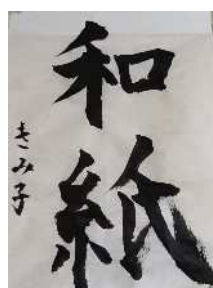 和紙
きみ子